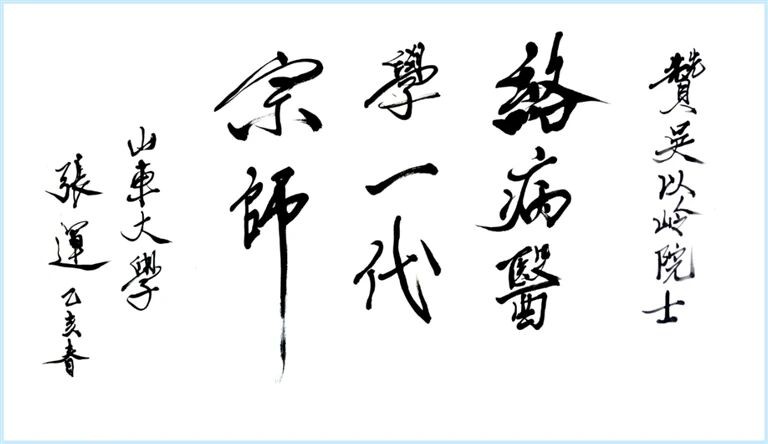 贊吴以岭院士
絡病醫
學一代
宗師
山東大學
張運 乙亥春